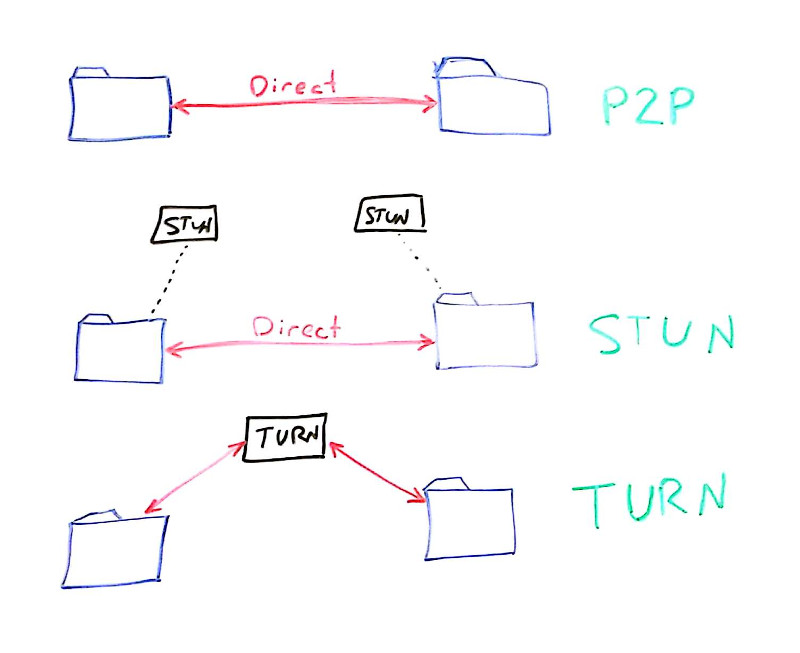 Direct
P2P
STUN
STUN
Direct
STUN
TURN
TURN